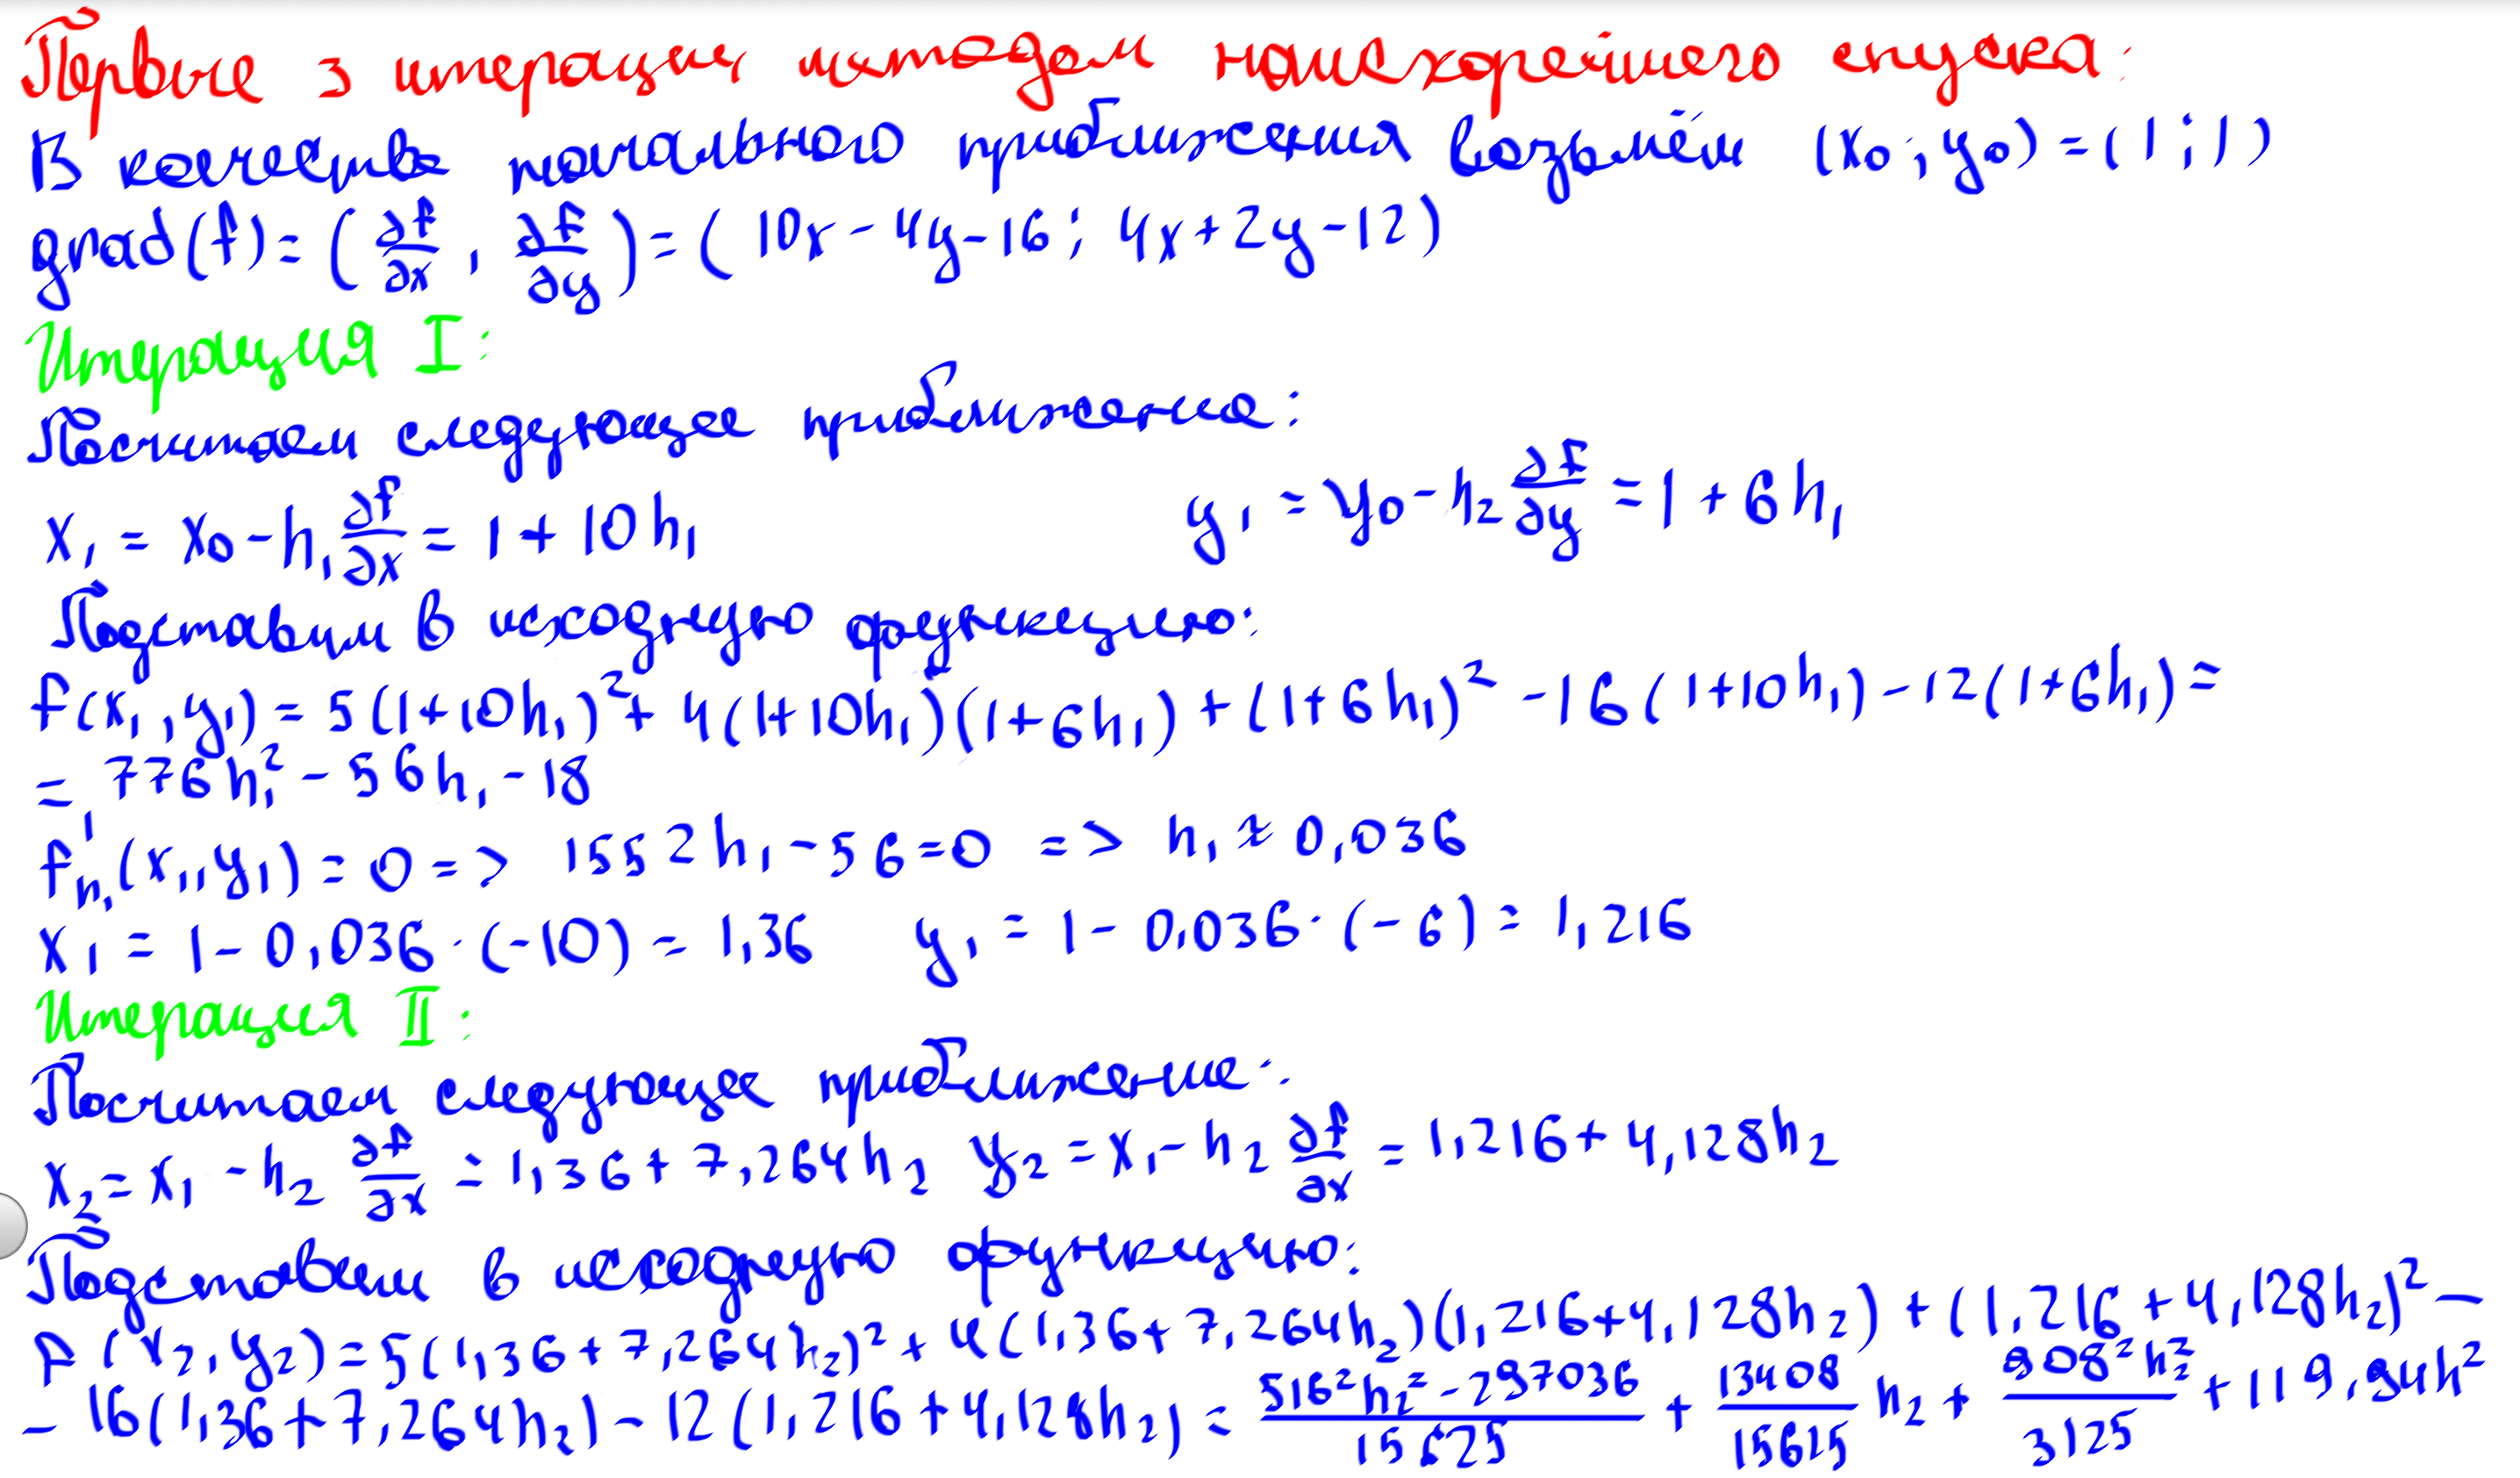 Первые 3 итерации методом наискорейшего спуска:
В качестве начального приближения возьмём (x₀; y₀) = (1; 1)
grad(f) = (∂f/∂x, ∂f/∂y) = (10x - 4y - 16; 4x + 2y - 12)
Итерация I:
Посчитаем следующее приближение:
x₁ = x₀ - h₁ ∂f/∂x = 1 + 10h₁ y₁ = y₀ - h₂ ∂f/∂y = 1 + 6h₁
Подставим в исходную функцию:
f(x₁, y₁) = 5(1+10h₁)² + 4(1+10h₁)(1+6h₁) + (1+6h₁)² - 16(1+10h₁) - 12(1+6h₁) =
= 776h₁² - 56h₁ - 18
f'h₁(x₁, y₁) = 0 => 1552h₁ - 56 = 0 => h₁ ≈ 0,036
x₁ = 1 - 0,036·(-10) = 1,36 y₁ = 1 - 0,036·(-6) = 1,216
Итерация II:
Посчитаем следующее приближение:
x₂ = x₁ - h₂ ∂f/∂x = 1,36 + 7,264h₂ y₂ = x₁ - h₂ ∂f/∂x = 1,216 + 4,128h₂
Подставим в исходную функцию:
F(x₂, y₂) = 5(1,36 + 7,264h₂)² + 4(1,36 + 7,264h₂)(1,216 + 4,128h₂) + (1,216 + 4,128h₂)² -
- 16(1,36 + 7,264h₂) - 12(1,216 + 4,128h₂) = (516²h₂² - 297036)/15625 + 13408/15625 h₂ + 908²h₂²/3125 + 119,94h²